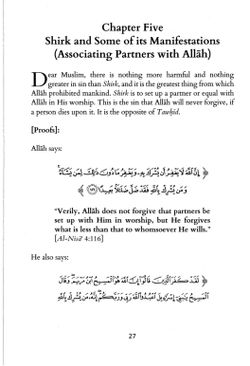 Chapter Five
Shirk and Some of its Manifestations
(Associating Partners with Allāh)
Dear Muslim, there is nothing more harmful and nothing
greater in sin than Shirk, and it is the greatest thing from which
Allāh prohibited mankind. Shirk is to set up a partner or equal with
Allāh in His worship. This is the sin that Allāh will never forgive, if
a person dies upon it. It is the opposite of Tauḥīd.
[Proofs]:
Allāh says:
﴿ إِنَّ ٱللَّهَ لَا يَغْفِرُ أَن يُشْرَكَ بِهِۦ وَيَغْفِرُ مَا دُونَ ذَٰلِكَ لِمَن يَشَآءُ ۚ
وَمَن يُشْرِكْ بِٱللَّهِ فَقَدْ ضَلَّ ضَلَٰلًۢا بَعِيدًا ﴿١١٦﴾ ﴾
"Verily, Allāh does not forgive that partners be
set up with Him in worship, but He forgives
what is less than that to whomsoever He wills."
[Al-Nisā' 4:116]
He also says:
﴿ لَقَدْ كَفَرَ ٱلَّذِينَ قَالُوٓا۟ إِنَّ ٱللَّهَ هُوَ ٱلْمَسِيحُ ٱبْنُ مَرْيَمَ ۖ وَقَالَ
ٱلْمَسِيحُ يَٰبَنِىٓ إِسْرَٰٓءِيلَ ٱعْبُدُوا۟ ٱللَّهَ رَبِّى وَرَبَّكُمْ ۖ إِنَّهُۥ مَن يُشْرِكْ بِٱللَّهِ
27